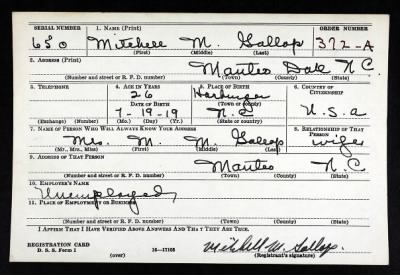 SERIAL NUMBER 1. NAME (Print) ORDER NUMBER
650 Mitchell M. Gallop 372-A
(First) (Middle) (Last)
2. ADDRESS (Print)
Manteo Dare N.C.
(Number and street or R. F. D. number) (Town) (County) (State)
3. TELEPHONE 4. AGE IN YEARS 5. PLACE OF BIRTH 6. COUNTRY OF CITIZENSHIP
26 Harbinger
DATE OF BIRTH (Town or county)
7-19-19 N.C. U.S.A
(Exchange) (Number) (Mo.) (Day) (Yr.) (State or country)
7. NAME OF PERSON WHO WILL ALWAYS KNOW YOUR ADDRESS 8. RELATIONSHIP OF THAT PERSON
Mrs. M. M. Gallop wife
(Mr., Mrs., Miss) (First) (Middle) (Last)
9. ADDRESS OF THAT PERSON
Manteo N.C
(Number and street or R. F. D. number) (Town) (County) (State)
10. EMPLOYER'S NAME
Unemployed
11. PLACE OF EMPLOYMENT OR BUSINESS
(Number and street or R. F. D. number) (Town) (County) (State)
I AFFIRM THAT I HAVE VERIFIED ABOVE ANSWERS AND THAT THEY ARE TRUE.
REGISTRATION CARD
D. S. S. Form 1 16-17105 Mitchell M. Gallop
(over) (Registrant's signature)